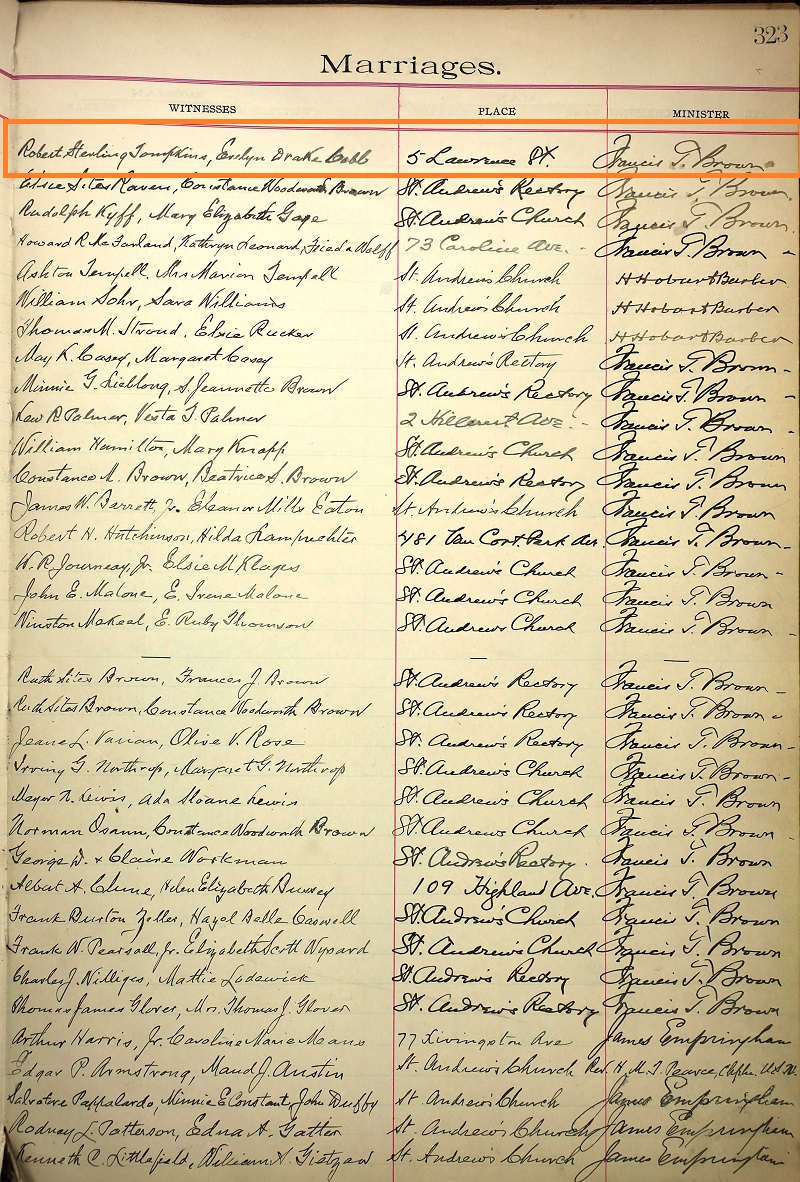 323
Marriages.
WITNESSES PLACE MINISTER
Robert Sterling Tompkins, Evelyn Drake Cobb 5 Lawrence St. Francis T. Brown
Elsie Sites Raven, Constance Woodworth Brown St. Andrew's Rectory Francis T. Brown
Rudolph Kyff, Mary Elizabeth Gage St. Andrew's Church Francis T. Brown
Howard R. McFarland, Kathryn Leonard, Frieda Wolff 73 Caroline Ave. - Francis T. Brown -
Ashton Tempell, Mrs Marion Tempell St. Andrew's Church H Hobart Barber
William Sohr, Sara Williams St. Andrew's Church H Hobart Barber
Thomas M. Stroud, Elsie Rucker St. Andrew's Church H Hobart Barber
May K. Casey, Margaret Casey St. Andrew's Rectory Francis T. Brown -
Minnie G. Lieblong, S. Jeannette Brown St. Andrew's Rectory Francis T. Brown -
Lew R Palmer, Vesta T Palmer 2 Hillcrest Ave. - Francis T. Brown -
William Hamilton, Mary Knapp St. Andrew's Church Francis T. Brown
Constance M. Brown, Beatrice S. Brown St. Andrew's Rectory Francis T. Brown
James W. Berrett, Jr. Eleanor Mills Eaton St. Andrew's Church Francis T. Brown
Robert H. Hutchinson, Hilda 481 Van Cort. Park Ave. Francis T. Brown -
W. R. Journeay, Jr. Elsie M Klages St. Andrew's Church Francis T. Brown -
John E. Malone, E. Irene Malone St. Andrew's Church Francis T. Brown
Winston McKeel, E. Ruby Thomson St. Andrew's Church Francis T. Brown -
— — —
Ruth Sites Brown, Frances J. Brown St. Andrew's Rectory Francis T. Brown -
Ruth Sites Brown, Constance Woodworth Brown St. Andrew's Rectory Francis T. Brown -
Jeane L. Varian, Olive V. Rose St. Andrew's Rectory Francis T. Brown -
Irving G. Northrop, Margaret G. Northrop St. Andrew's Church Francis T. Brown -
Meyer N. Lewis, Ada Sloane Lewis St. Andrew's Church Francis T. Brown
Norman Osann, Constance Woodworth Brown St. Andrew's Church Francis T. Brown -
George D. + Claire Workman St. Andrew's Rectory. Francis T. Brown
Albert A. Clune, Helen Elizabeth 109 Highland Ave. Francis T. Brown
Frank Durton Zeller, Hazel Belle Caswell St. Andrew's Church Francis T. Brown
Frank W. Pearsall, Jr. Elizabeth Scott Wysard St. Andrew's Church Francis T. Brown
Charles J. Nilliges, Mattie Lodewick St. Andrew's Rectory Francis T. Brown
Thomas James Glover, Mrs. Thomas J. Glover St. Andrew's Rectory Francis T. Brown
Arthur Harris, Jr. Caroline Marie Means 77 Livingston Ave James Empringham
Edgar P. Armstrong, Maud J. Austin St. Andrew's Church Rev. H. M. T. Pearce, Chpln. U.S.N.
Salvatore Pappalardo, Minnie E Constant, John Duffy St. Andrew's Church James Empringham
Rodney L. Patterson, Edna A. Gatter St. Andrew's Church James Empringham
Kenneth C. Littlefield, William H. Gietzen St. Andrew's Church James Empringham